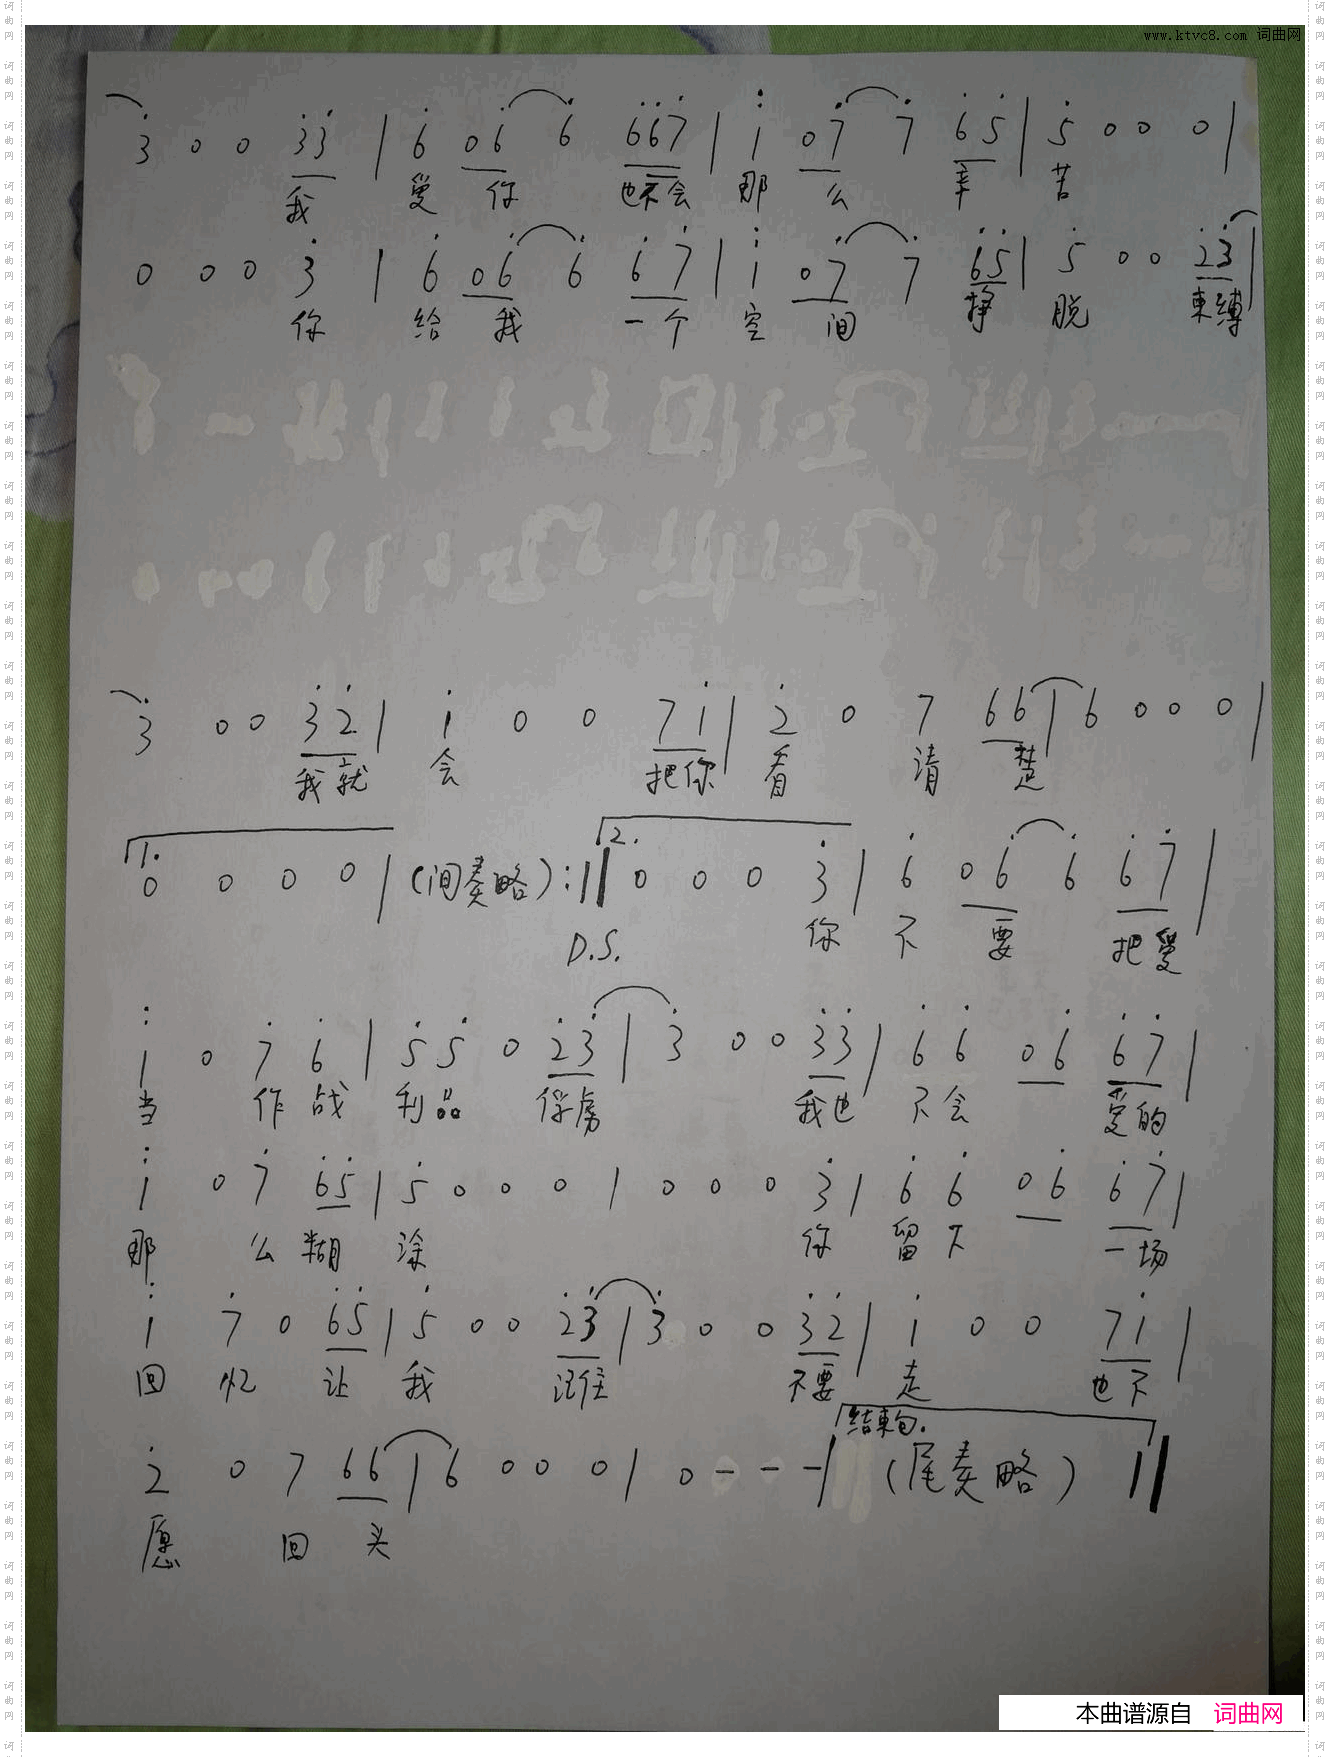 www.ktvc8.com 词曲网
3 0 0 3 3 | 6 0 6 6 6 6 7 | 1 0 7 7 6 5 | 5 0 0 0 |
我 爱 你 也不会 那 么 辛 苦
0 0 0 3 | 6 0 6 6 6 7 | 1 0 7 7 6 5 | 5 0 0 2 3 |
你 给 我 一 个 空 间 挣 脱 束缚
3 0 0 3 2 | 1 0 0 7 1 | 2 0 7 6 6 | 6 0 0 0 |
我 就 会 把你 看 清 楚
1. 2.
0 0 0 0 | (间奏略) :|| 0 0 0 3 | 6 0 6 6 6 7 |
D.S. 你 不 要 把爱
1 0 7 6 | 5 5 0 2 3 | 3 0 0 3 3 | 6 6 0 6 6 7 |
当 作 战 利品 俘虏 我也 不会 爱的
1 0 7 6 5 | 5 0 0 0 | 0 0 0 3 | 6 6 0 6 6 7 |
那 么 糊 涂 你 留 下 一 场
1 7 0 6 5 | 5 0 0 2 3 | 3 0 0 3 2 | 1 0 0 7 1 |
回 忆 让 我 记住 不要 走 也 不
结束句.
2 0 7 6 6 | 6 0 0 0 | 0 - - - | (尾奏略) ||
愿 回 头
本曲谱源自 词曲网